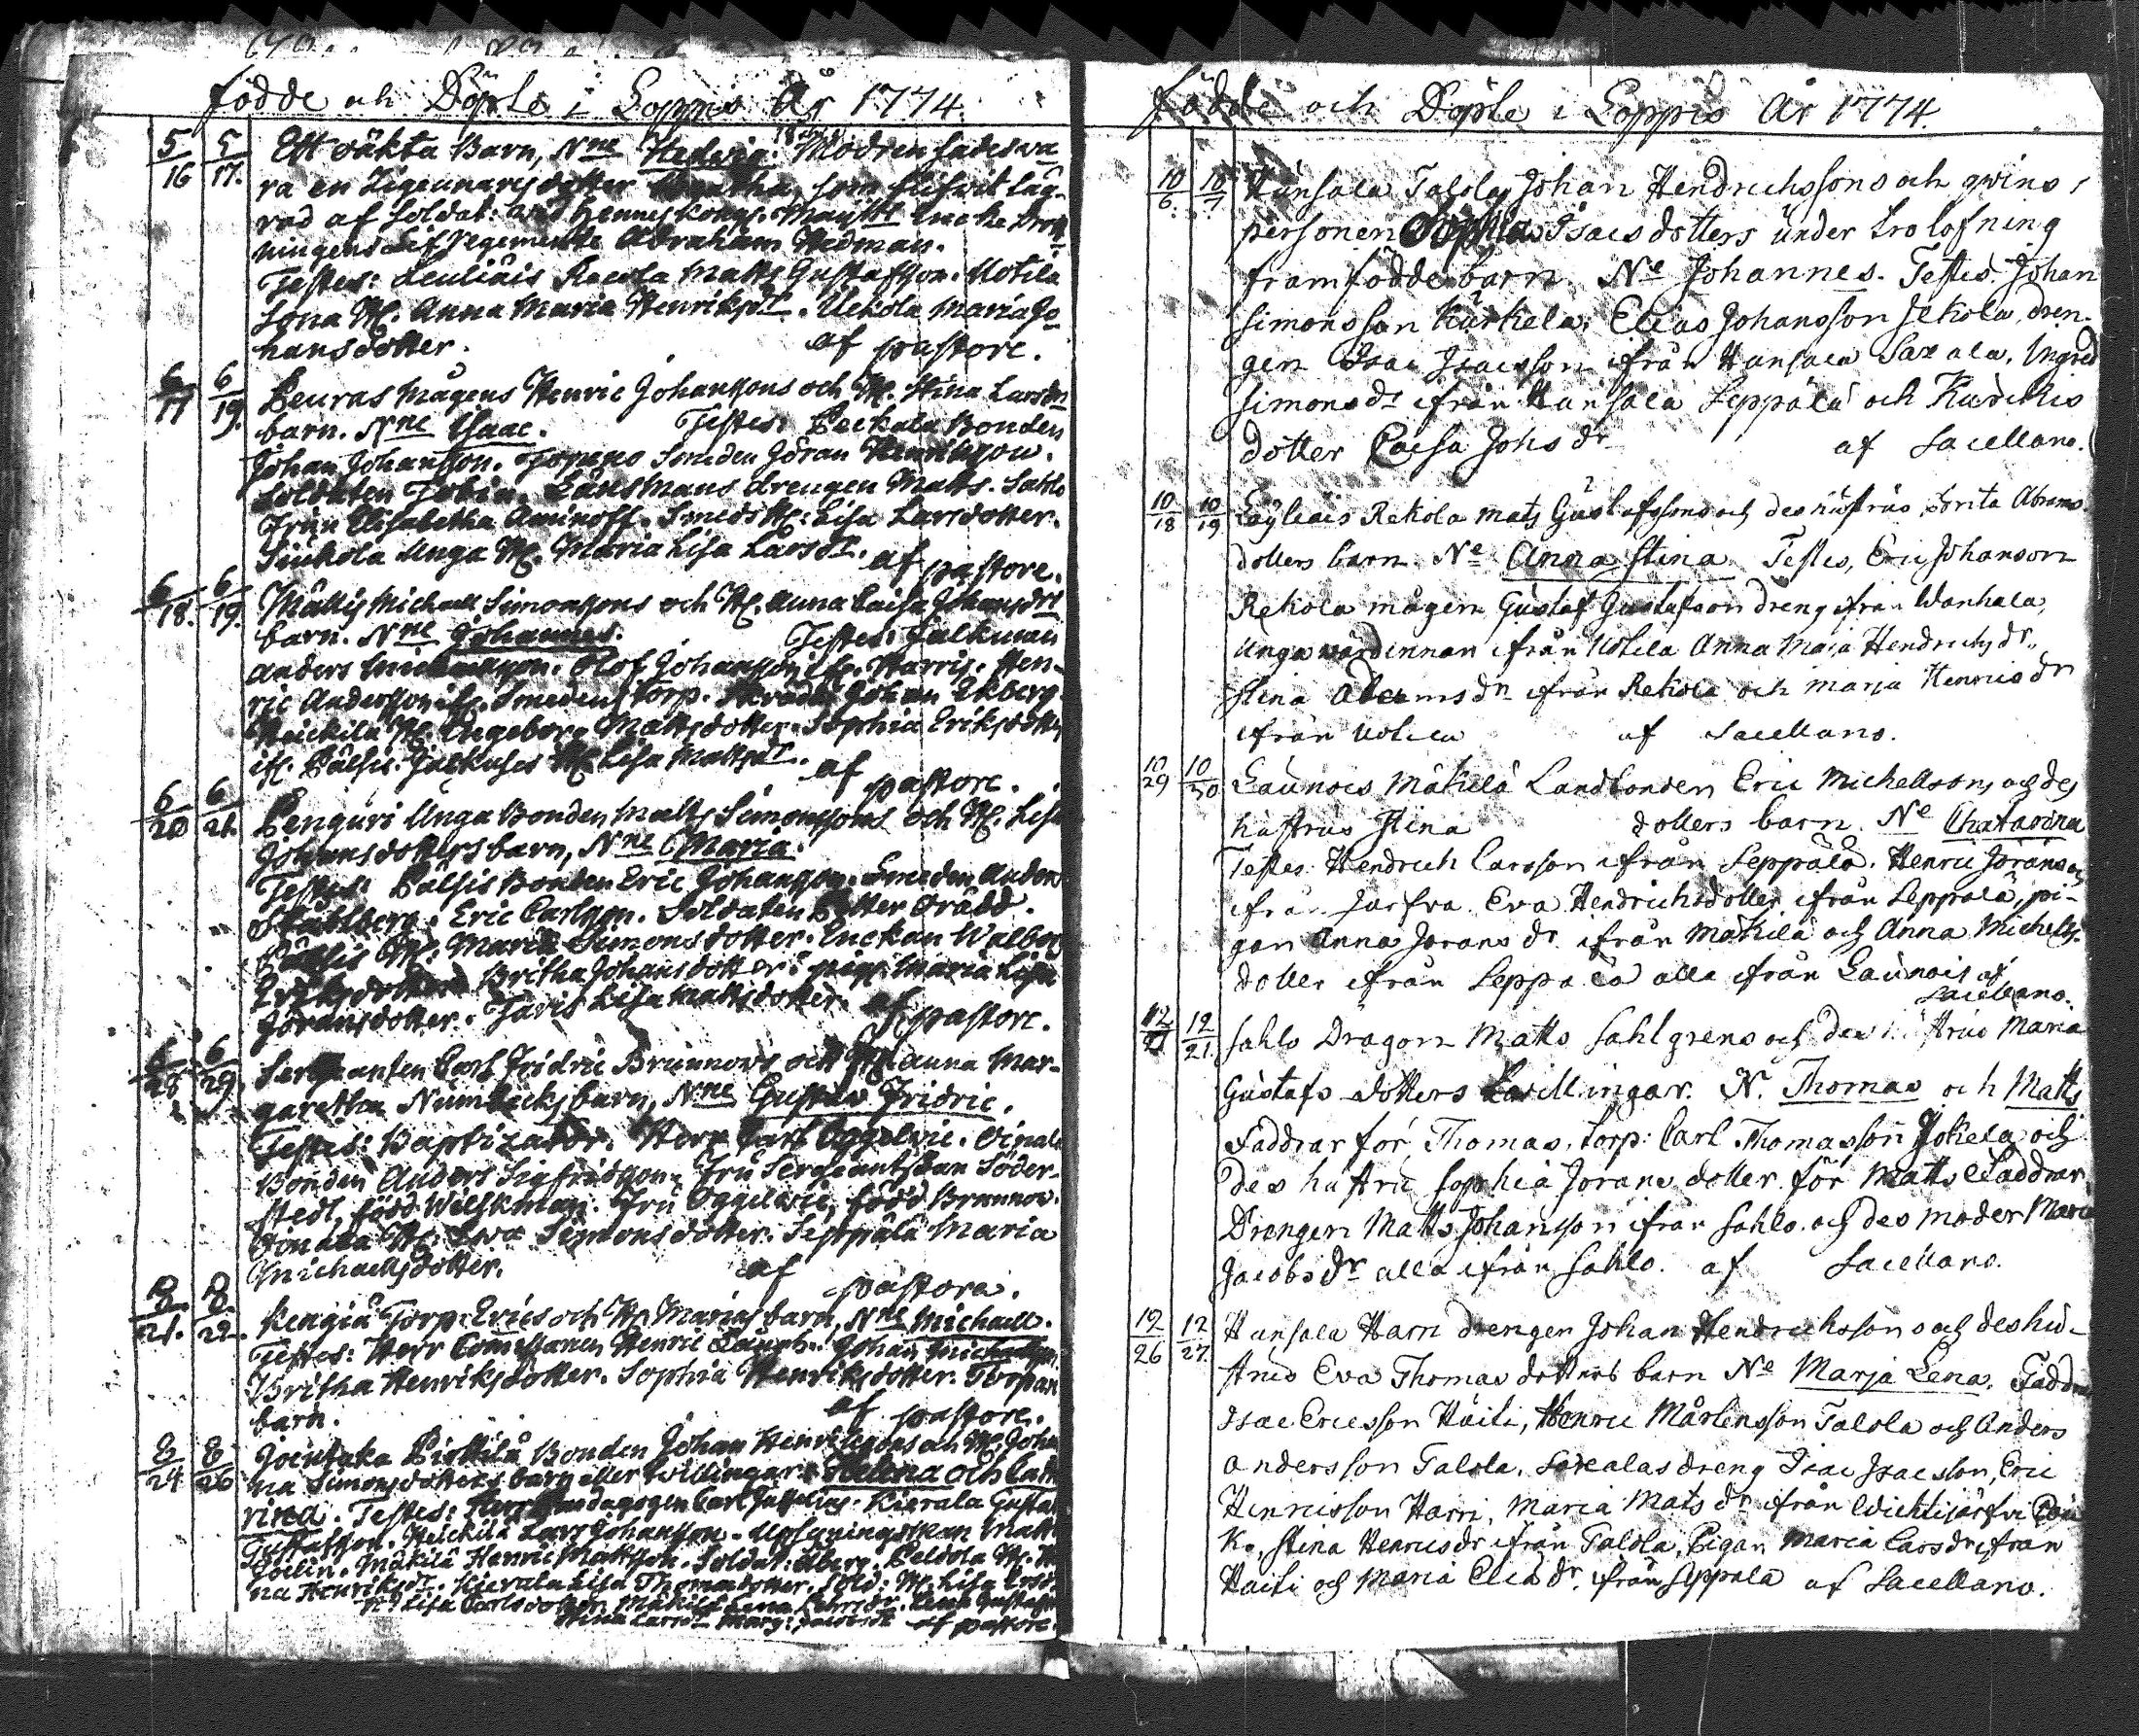 födde och Döpte i Loppis År 1774.
5/16 5/17. Ett oäkta Barn, Nne Hedwig. Modren sades wa-
ra en Zigeunares dotter Agatha, som blifwit läg-
rad af Soldat: wid Hennes Kongl. Maijtt Enke Drott-
ningens Lif Regemente Abraham Hedman.
Testes: Leuliäis Recola Matts Gustafsson. Uotila
Sona H. Anna Maria Henriksdr. Uckola Maria Jo-
hansdotter. af pastore.
6/17 6/19. Beuras Mågens Henric Johanssons och H. Stina Larsdrs
barn. Nne Isaac. Testes: Peckala Bonden
Johan Johansson. Topeno Smeden Göran Henriksson.
Soldaten Tobin. Länsmans drengen Matts. Sahlo
Frun Elisabetha Aminoff. Smeds H: Lisa Larsdotter.
Sinkola Unga H. Maria Lisa Larsdr. af pastore.
6/18. 6/19. Mällis Michaell Simonssons och H. Anna Caisa Johansdrs
barn. Nne Johannes. Testes: Jalkman
Anders Michaelsson. Olof Johansson ib. Harris. Hen-
ric Andersson ib. Smeden Torp. Skrädd: Johan Ekberg.
Heickilä H. Ingeborg Mattsdotter. Sophia Eriksdotter
ib. Pälsis. Jalkuses H. Lisa Mattsdr.
af pastore.
6/20 6/21. Penguri Unga Bonden Matts Simonssons och H. Lisa
Johansdotters barn, Nne Maria.
Testes: Pälsis Bonden Eric Johansson. Smeden Anders
Ståhlberg. Eric Carlsson. Soldaten Petter Brådd.
Pällsis H: Maria Simonsdotter. Enckan Walborg
Eriksdotter Britha Johansdotter. pig: Maria Lisa
Göransdotter. Jaris Lisa Mattsdotter. af pastore.
6/28 6/29. Sergeanten Carl Fridric Brunnows och H. Anna Mar-
garetha Numbäcks barn, Nne Gustav Fridric.
Testes: Baptizator. Herr Carl Oggelwie. Oinala
Bonden Anders Sigfredsson. Fru Sergeantskan Söder-
stedt, född Wilskman. Fru Oggelwie, född Brunnow.
Oinala H. Ewa Simonsdotter. Seppälä Maria
Michaelsdotter. af pastore.
8/21. 8/22. Kengiä Torp: Erics och H. Marias barn, Nne Michaell.
Testes: Herr Comissarien Henric Johan Michaelsson.
Britha Henriksdotter. Sophia Henriksdotter. Torpare
barn. af pastore.
8/24 8/26 Joentaka Pirttilä Bonden Johan Henrikssons och H. Joha-
na Simonsdotters barn eller twillingar: Helena och Cath-
rina. Testes: Herr Paedagogen Carl Kierala Gustaf
Gustafsson. Heickilä Lars Johansson. Matts
Joelin. Mäkilä Henric Mattsson. Soldat: Åberg. Peldola H. An-
na Henriksdr. Kierala Lisa Thomasdotter. Sold: H. Lisa Ersdr.
Lisa Carlsdotter. Mäkilä Lena Larsdr. Lena Gustafsdr
Stina Larsdr Marg: Jacobsdr af pastore.
födde och Döpte i Loppis År 1774.
10/6. 10/7. Hunsala Talola Johan Hendrichssons och qwins-
personen Sophia Isacsdotters under trolofning
framfödde barn Ne Johannes. Testes. Johan
Simonsson Kurkela, Elias Johansson Jekola, dren-
gen Isac Isacsson ifrån Hunsala Saxala, Ingred
Simonsdr ifrån Hunsala Seppälä och Kurckis
dotter Caisa Johsdr af Sacellano.
10/18 10/19 Läyleäis Rekola Mats Gustafssons och des hustrus Brita Abrams-
dotters barn Ne Anna Stina Testes, Eric Johanson
Rekola mågen Gustaf Gustafson dreng ifrån Wanhala,
unga wärdinnan ifrån Uotila Anna Maia Hendrichsdr,
Stina Adamsdr ifrån Rekola och Marja Henricsdr
ifrån Uotila af Sacellano.
10/29 10/30 Launois Mäkilä Landbonden Eric Michellsons och des
hustrus Stina dotters barn Ne Chatarina
Testes Hendrich Carsson ifrån Seppälä. Henric Joransson
ifrån Jarfva. Eva Hendrichsdotter ifrån Seppälä, pi-
gan Anna Joransdr ifrån Mäkilä och Anna Michels-
dotter ifrån Seppälä alla ifrån Launois af
Sacellano.
12/21 12/21. Sahlo Dragon Matts Sahlgrens och des hustrus Maria
Gustafs dotters twillingar. N. Thomas och Matts
Faddrar för Thomas, torp: Carl Thomasson Jokela och
des hustru Sophia Jorans dotter. för Matts Faddrar
Drengen Matts Johansson ifrån Sahlo och des moder Maria
Jacobsdr alla ifrån Sahlo. af Sacellano.
12/26 12/27. Hunsala Harri drengen Johan Hendrichssons och des hu-
strus Eva Thomas dotters barn Ne Marja Lena. Faddrar
Isac Ericsson Häiti, Henric Mårtensson Talola och Anders
Andersson Talola. Saxalas dreng Isac Isacsson, Eric
Henricsson Harri, Maria Matsdr ifrån Wichtijärfvi
Ko, Stina Henricsdr ifrån Talola, Pigan Maria Carsdr ifrån
Haiti och Maria Eliædr ifrån Seppälä af Sacellano.